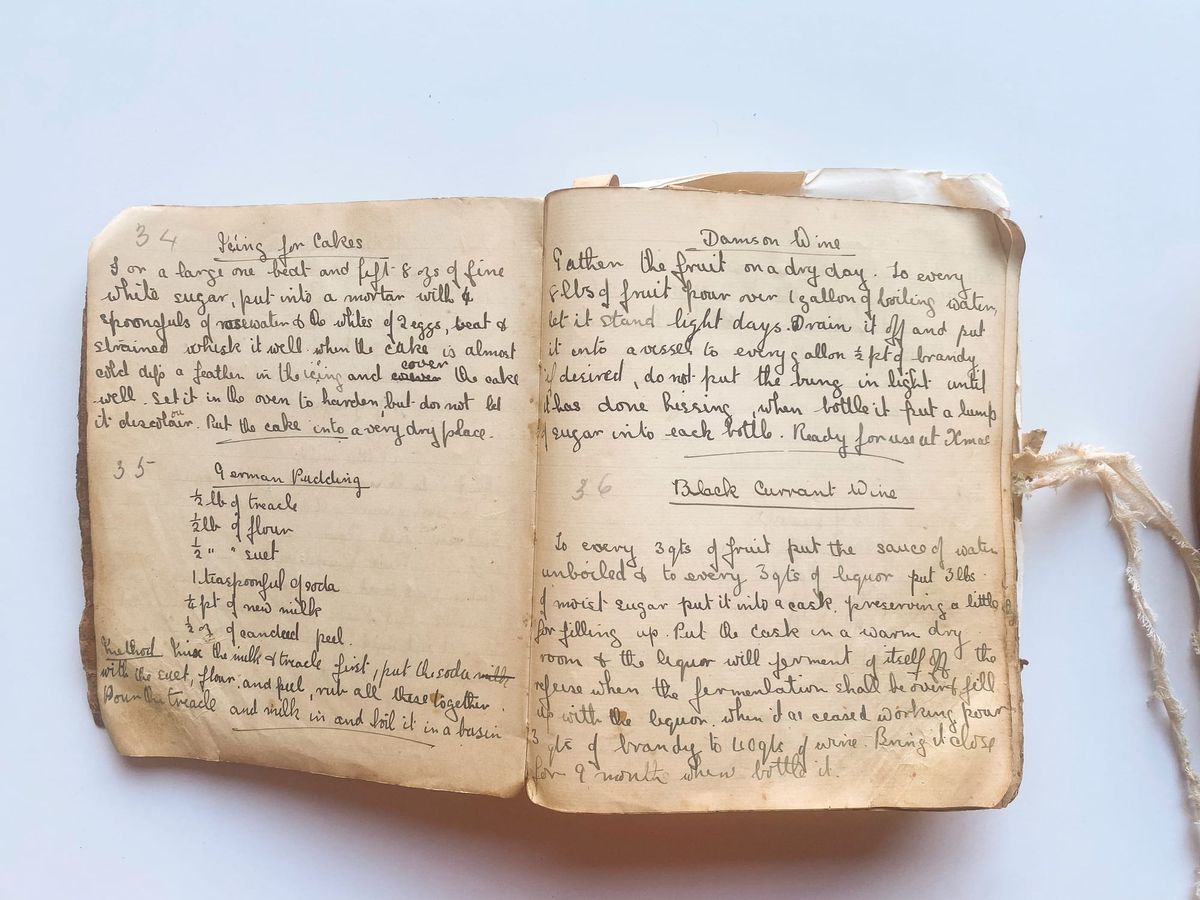 34
Icing for Cakes
For a large one beat and sift 8 ozs of fine
white sugar, put into a mortar with 4
spoonsfuls of rosewater & the whites of 2 eggs, beat &
strained whisk it well. when the cake is almost
cold dip a feather in the icing and cover the cake
well. Set it in the oven to harden, but do not let
it discolour. Put the cake into a very dry place.
35
German Pudding
½ lb of treacle
½ lb of flour
½ " " suet
1 teaspoonful of soda
¼ pt of new milk
½ oz of candied peel.
Method Mix the milk & treacle first, put the soda milk
with the suet, flour, and peel, rub all these together.
Pour the treacle and milk in and boil it in a basin
Damson Wine
Gather the fruit on a dry day. To every
8 lbs of fruit pour over 1 gallon of boiling water,
let it stand eight days. Drain it off and put
it into a vessel to every gallon ½ pt of brandy
if desired, do not put the bung in tight until
it has done hissing, when bottle it put a lump
of sugar into each bottle. Ready for use at Xmas
36
Black Currant Wine
To every 3 qts of fruit put the sauce of water
unboiled & to every 3 qts of liquor put 3 lbs
of moist sugar put it into a cask, preserving a little
for filling up. Put the cask in a warm dry
room & the liquor will ferment of itself off the
refuse when the fermentation shall be over & fill
up with the liquor. when it as ceased working pour
3 qts of brandy to 40 qts of wine. Bung it close
for 9 month when bottle it.